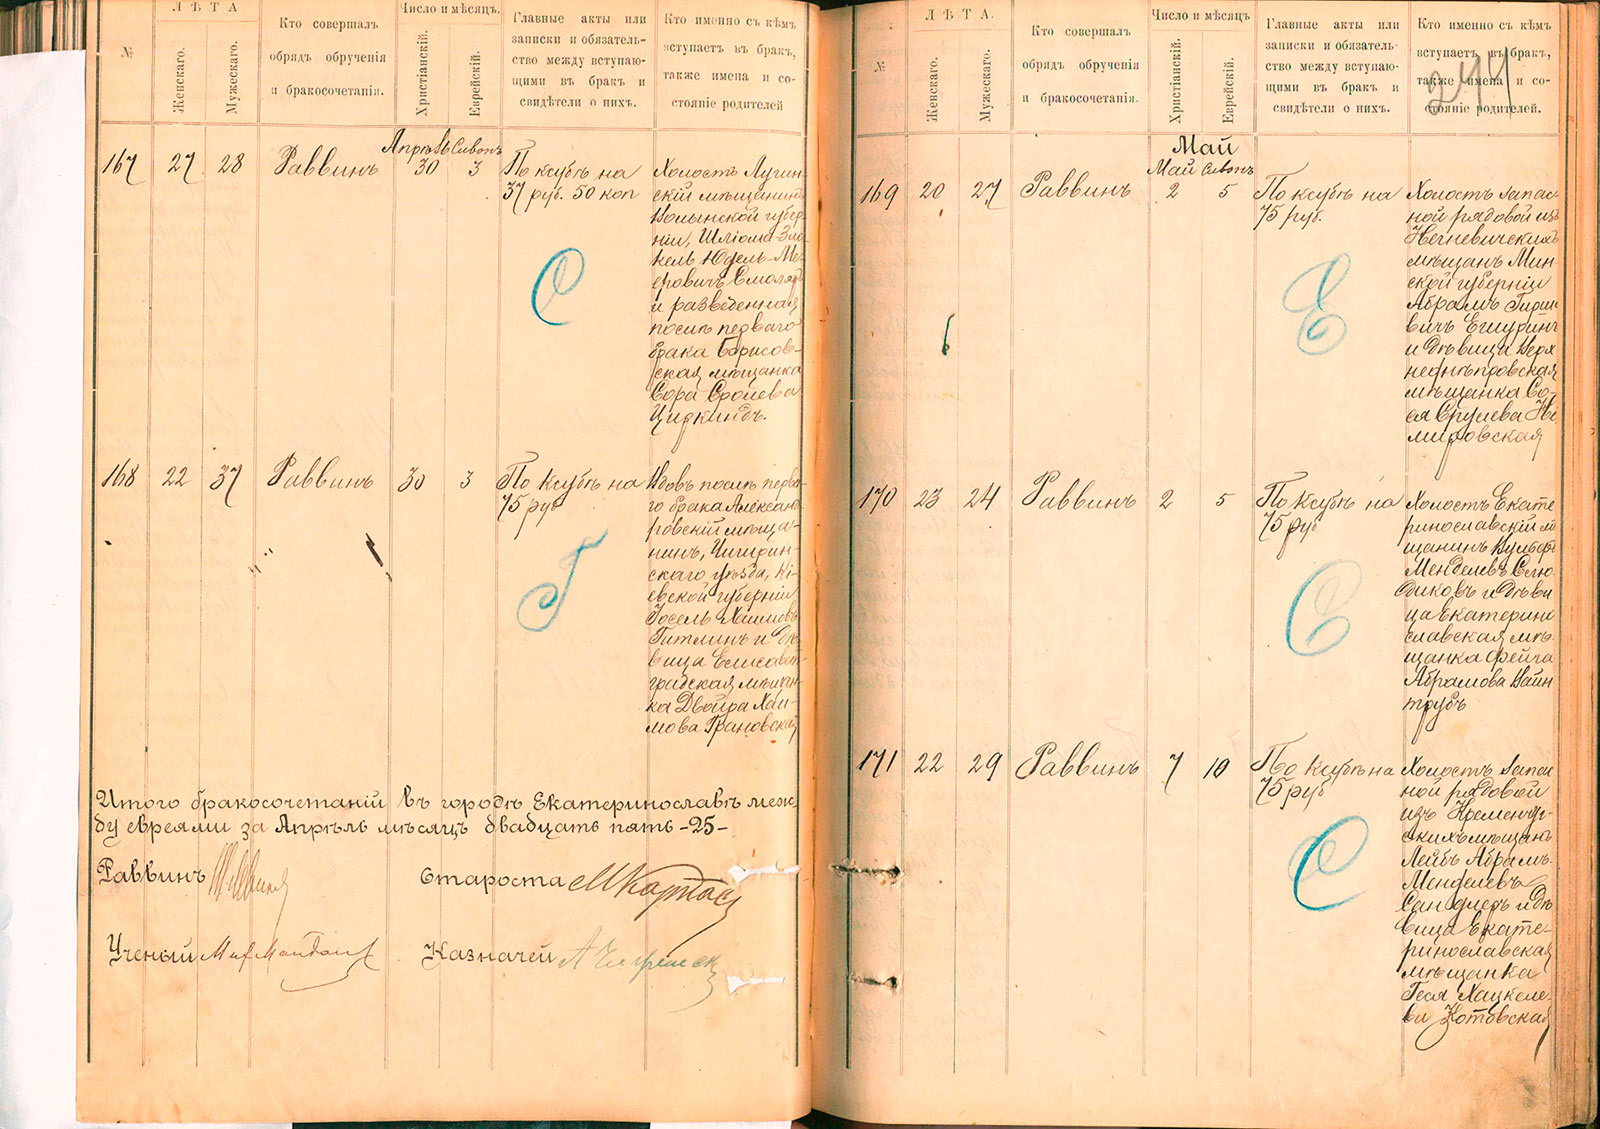 ЛѢТА
№
Женскаго.
Мужескаго.
Кто совершалъ
обрядъ обрученія
и бракосочетанія.
Число и мѣсяцъ.
Христіанскій.
Еврейскій.
Главные акты или
записки и обязатель-
ство между вступаю-
щими въ бракъ и
свидѣтели о нихъ.
Кто именно съ кѣмъ
вступаетъ въ бракъ,
также имена и со-
стояніе родителей
Апрѣль Сивонъ
167 27 28 Раввинъ 30 3
По ксубѣ на
37 руб. 50 коп
С
Холостъ Лугин-
скій мѣщанинъ
Волынской губер
ніи, Шліома-Зло
кель Юдель-Ме
еровичъ Смоляръ
и разведенная
послѣ перваго
брака Борисов-
ская мѣщанка
Сора Сролева
Циркиндъ.
168 22 37 Раввинъ 30 3
По ксубѣ на
75 руб
Г
Вдовъ послѣ перва-
го брака Александ
ровскій мѣща-
нинъ, Чигирин-
скаго уѣзда, Кі-
евской губерніи
Іосель Хаимовъ
Гитлинъ и дѣ-
вица Елисавет-
градская мѣщан-
ка Двойра Хаи-
мова Грановская
Итого бракосочетаній въ городѣ Екатеринославѣ меж-
ду евреями за Апрѣль мѣсяцъ двадцать пять -25-
Раввинъ
Староста М Карпас
Ученый
Казначей
ЛѢТА.
№
Женскаго.
Мужескаго.
Кто совершалъ
обрядъ обрученія
и бракосочетанія.
Число и мѣсяцъ
Христіанскій.
Еврейскій.
Главные акты или
записки и обязатель-
ство между вступаю-
щими въ бракъ и
свидѣтели о нихъ.
Кто именно съ кѣмъ
вступаетъ въ бракъ,
также имена и со-
стояніе родителей.
244
Май
Май Сивонъ
169 20 27 Раввинъ 2 5
По ксубѣ на
75 руб.
Е
Холостъ запас-
ной рядовой изъ
Негневичскихъ
мѣщанъ Мин-
ской губерніи
Абрамъ Гирше
вичъ Ешуринъ
и дѣвица Верх
неднѣпровская
мѣщанка Со-
ся Срулева Не
мировская
170 23 24 Раввинъ 2 5
По ксубѣ на
75 руб
С
Холостъ Екате
ринославскій мѣ
щанинъ Вульфъ
Менделевъ Селю
диковъ и дѣви
ца Екатерино
славская мѣ-
щанка Фейга
Абрамова Вайн
трубъ
171 22 29 Раввинъ 7 10
По ксубѣ на
75 руб
С
Холостъ запас
ной рядовой
изъ Кременчуг-
скихъ мѣщанъ
Лейбъ Абрамъ-
Менделевъ
Сандлеръ и дѣ
вица Екате-
ринославская
мѣщанка
Геся Хацкеле-
ва Котовская